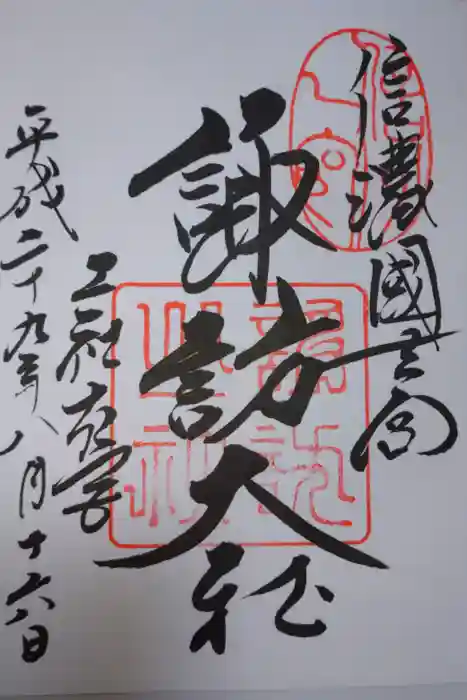 信濃國一之宮
諏訪大社
上社本宮
平成二十九年八月十六日